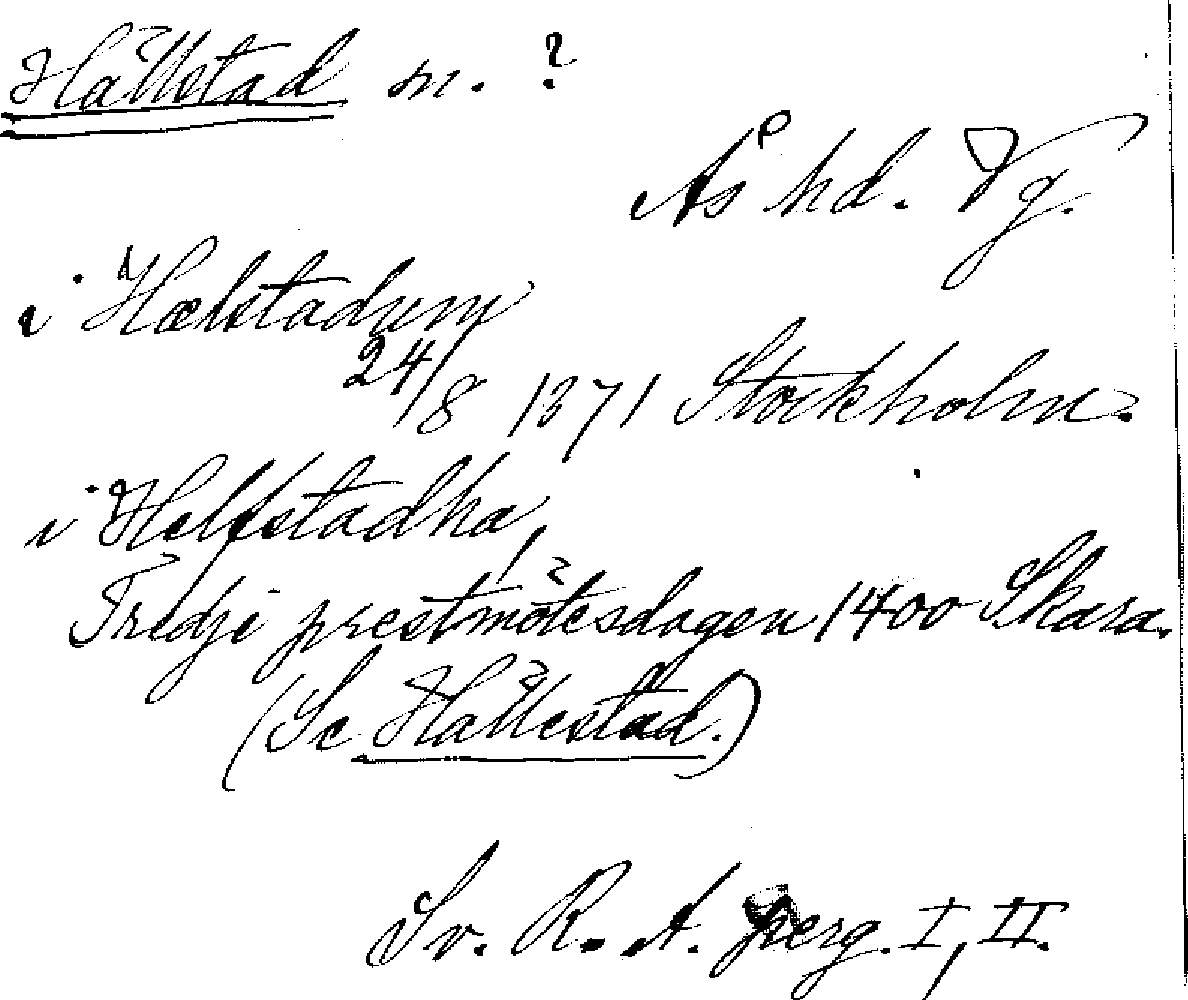 Hällstad sn. ?
Ås hd. Vg.
i Hælstadum
24/8 1371 Stockholm.
i Helfstadha,
Tredje prestmötesdagen 1400 Skara.
(Se Hällestad.)
Sv. R. A. perg. I, II.